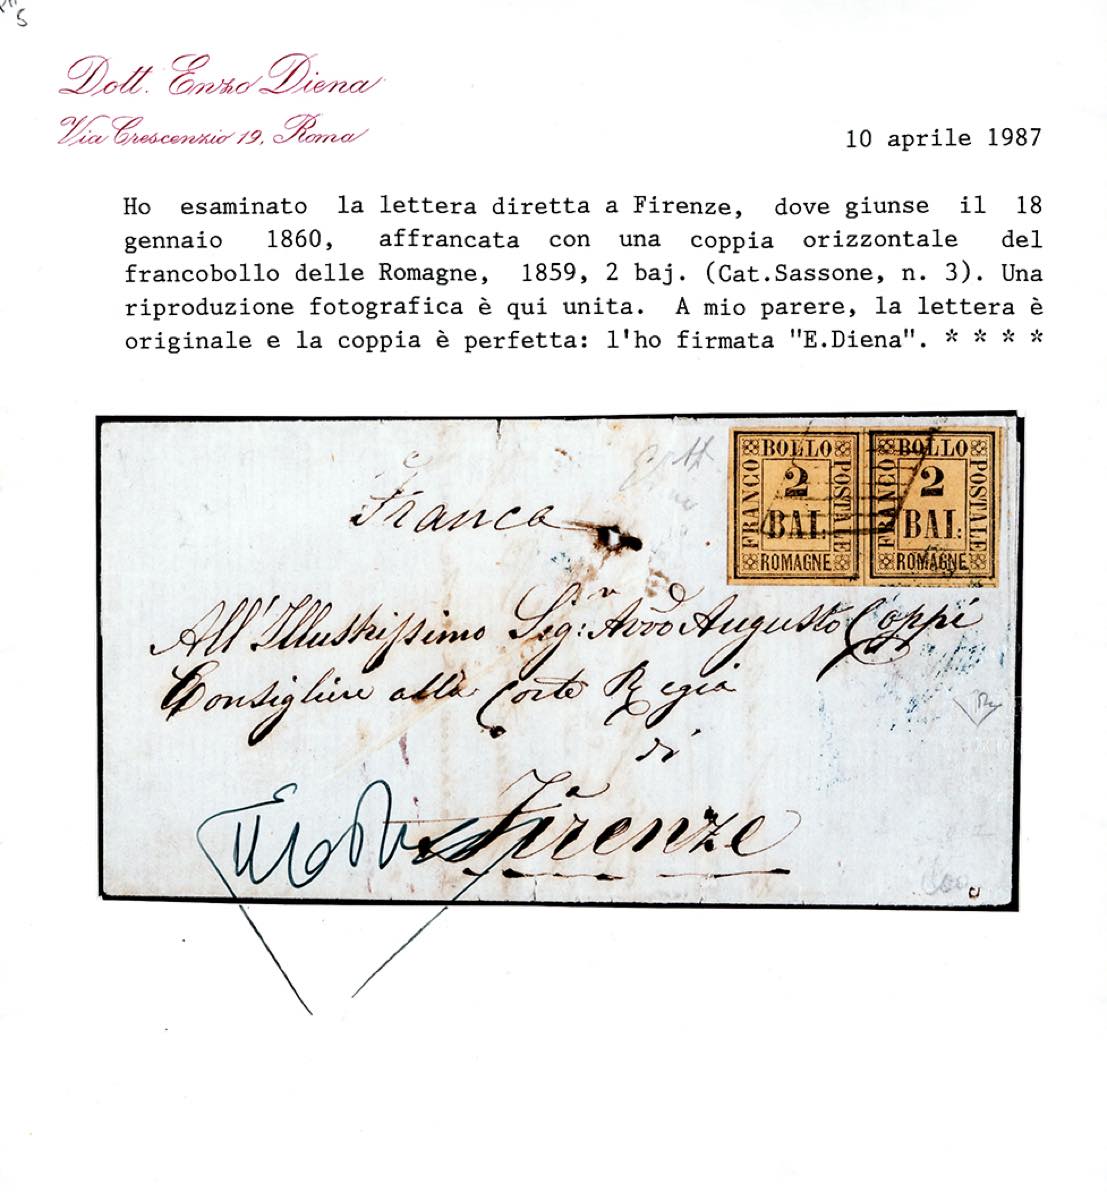 Dott. Enzo Diena
Via Crescenzio 19, Roma
10 aprile 1987
Ho esaminato la lettera diretta a Firenze, dove giunse il 18
gennaio 1860, affrancata con una coppia orizzontale del
francobollo delle Romagne, 1859, 2 baj. (Cat.Sassone, n. 3). Una
riproduzione fotografica è qui unita. A mio parere, la lettera è
originale e la coppia è perfetta: l'ho firmata "E.Diena". * * * *
BOLLO
FRANCO
2
BAI:
POSTALE
ROMAGNE
BOLLO
FRANCO
2
BAI:
POSTALE
ROMAGNE
Franca
All'Illustrissimo Sig: Avvo Augusto Coppi
Consigliere alla Corte Regia
di
Firenze